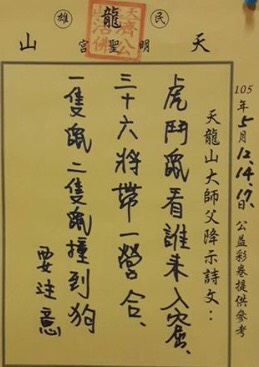 民 龍 雄
天 明聖宮 山
105年5月12.14.17日 公益彩卷提供參考
天龍山大師父降示詩文：
虎鬥鼠看誰來入窟、
三十六將帶一營合、
一隻鼠二隻鼠撞到狗
要注意